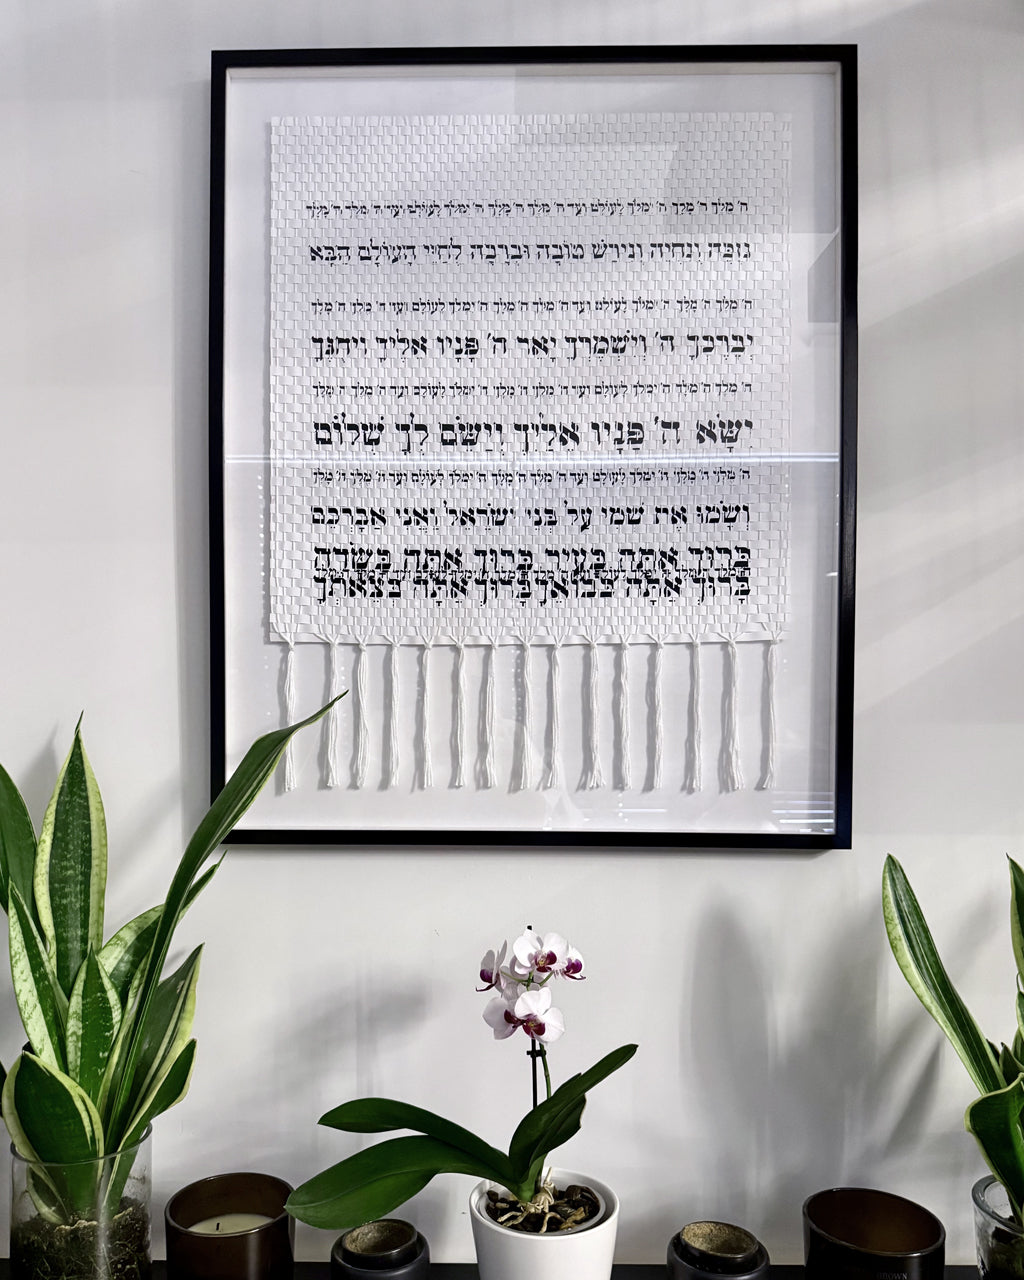 ה' מֶלֶךְ ה' מָלָךְ ה' יִמְלֹךְ לְעוֹלָם וָעֶד ה' מֶלֶךְ ה' מָלָךְ ה' יִמְלֹךְ לְעוֹלָם וָעֶד ה' מֶלֶךְ ה' מָלָךְ
נִזְכֶּה וְנִחְיֶה וְנִירַשׁ טוֹבָה וּבְרָכָה לְחַיֵּי הָעוֹלָם הַבָּא
ה' מֶלֶךְ ה' מָלָךְ ה' יִמְלֹךְ לְעוֹלָם וָעֶד ה' מֶלֶךְ ה' מָלָךְ ה' יִמְלֹךְ לְעוֹלָם וָעֶד ה' מֶלֶךְ ה' מָלָךְ
יְבָרֶכְךָ ה' וְיִשְׁמְרֶךָ יָאֵר ה' פָּנָיו אֵלֶיךָ וִיחֻנֶּךָּ
ה' מֶלֶךְ ה' מָלָךְ ה' יִמְלֹךְ לְעוֹלָם וָעֶד ה' מֶלֶךְ ה' מָלָךְ ה' יִמְלֹךְ לְעוֹלָם וָעֶד ה' מֶלֶךְ ה' מָלָךְ
יִשָּׂא ה' פָּנָיו אֵלֶיךָ וְיָשֵׂם לְךָ שָׁלוֹם
ה' מֶלֶךְ ה' מָלָךְ ה' יִמְלֹךְ לְעוֹלָם וָעֶד ה' מֶלֶךְ ה' מָלָךְ ה' יִמְלֹךְ לְעוֹלָם וָעֶד ה' מֶלֶךְ ה' מָלָךְ
וְשָׂמוּ אֶת שְׁמִי עַל בְּנֵי יִשְׂרָאֵל וַאֲנִי אֲבָרְכֵם
בָּרוּךְ אַתָּה בָּעִיר בָּרוּךְ אַתָּה בַּשָּׂדֶה
בָּרוּךְ אַתָּה בְּבוֹאֶךָ בָּרוּךְ אַתָּה בְּצֵאתֶךָ